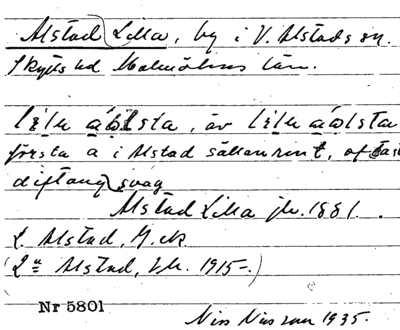 Alstad Lilla, by i V. Alstads sn.
Skytts hd Malmöhus län.
första a i Alstad sällan rent, oftast
diftong svag
Alstad Lilla jb. 1881.
L. Alstad, G.ek
(La Alstad, 1915.)
Nr 5801
Nils Nilsson 1935.